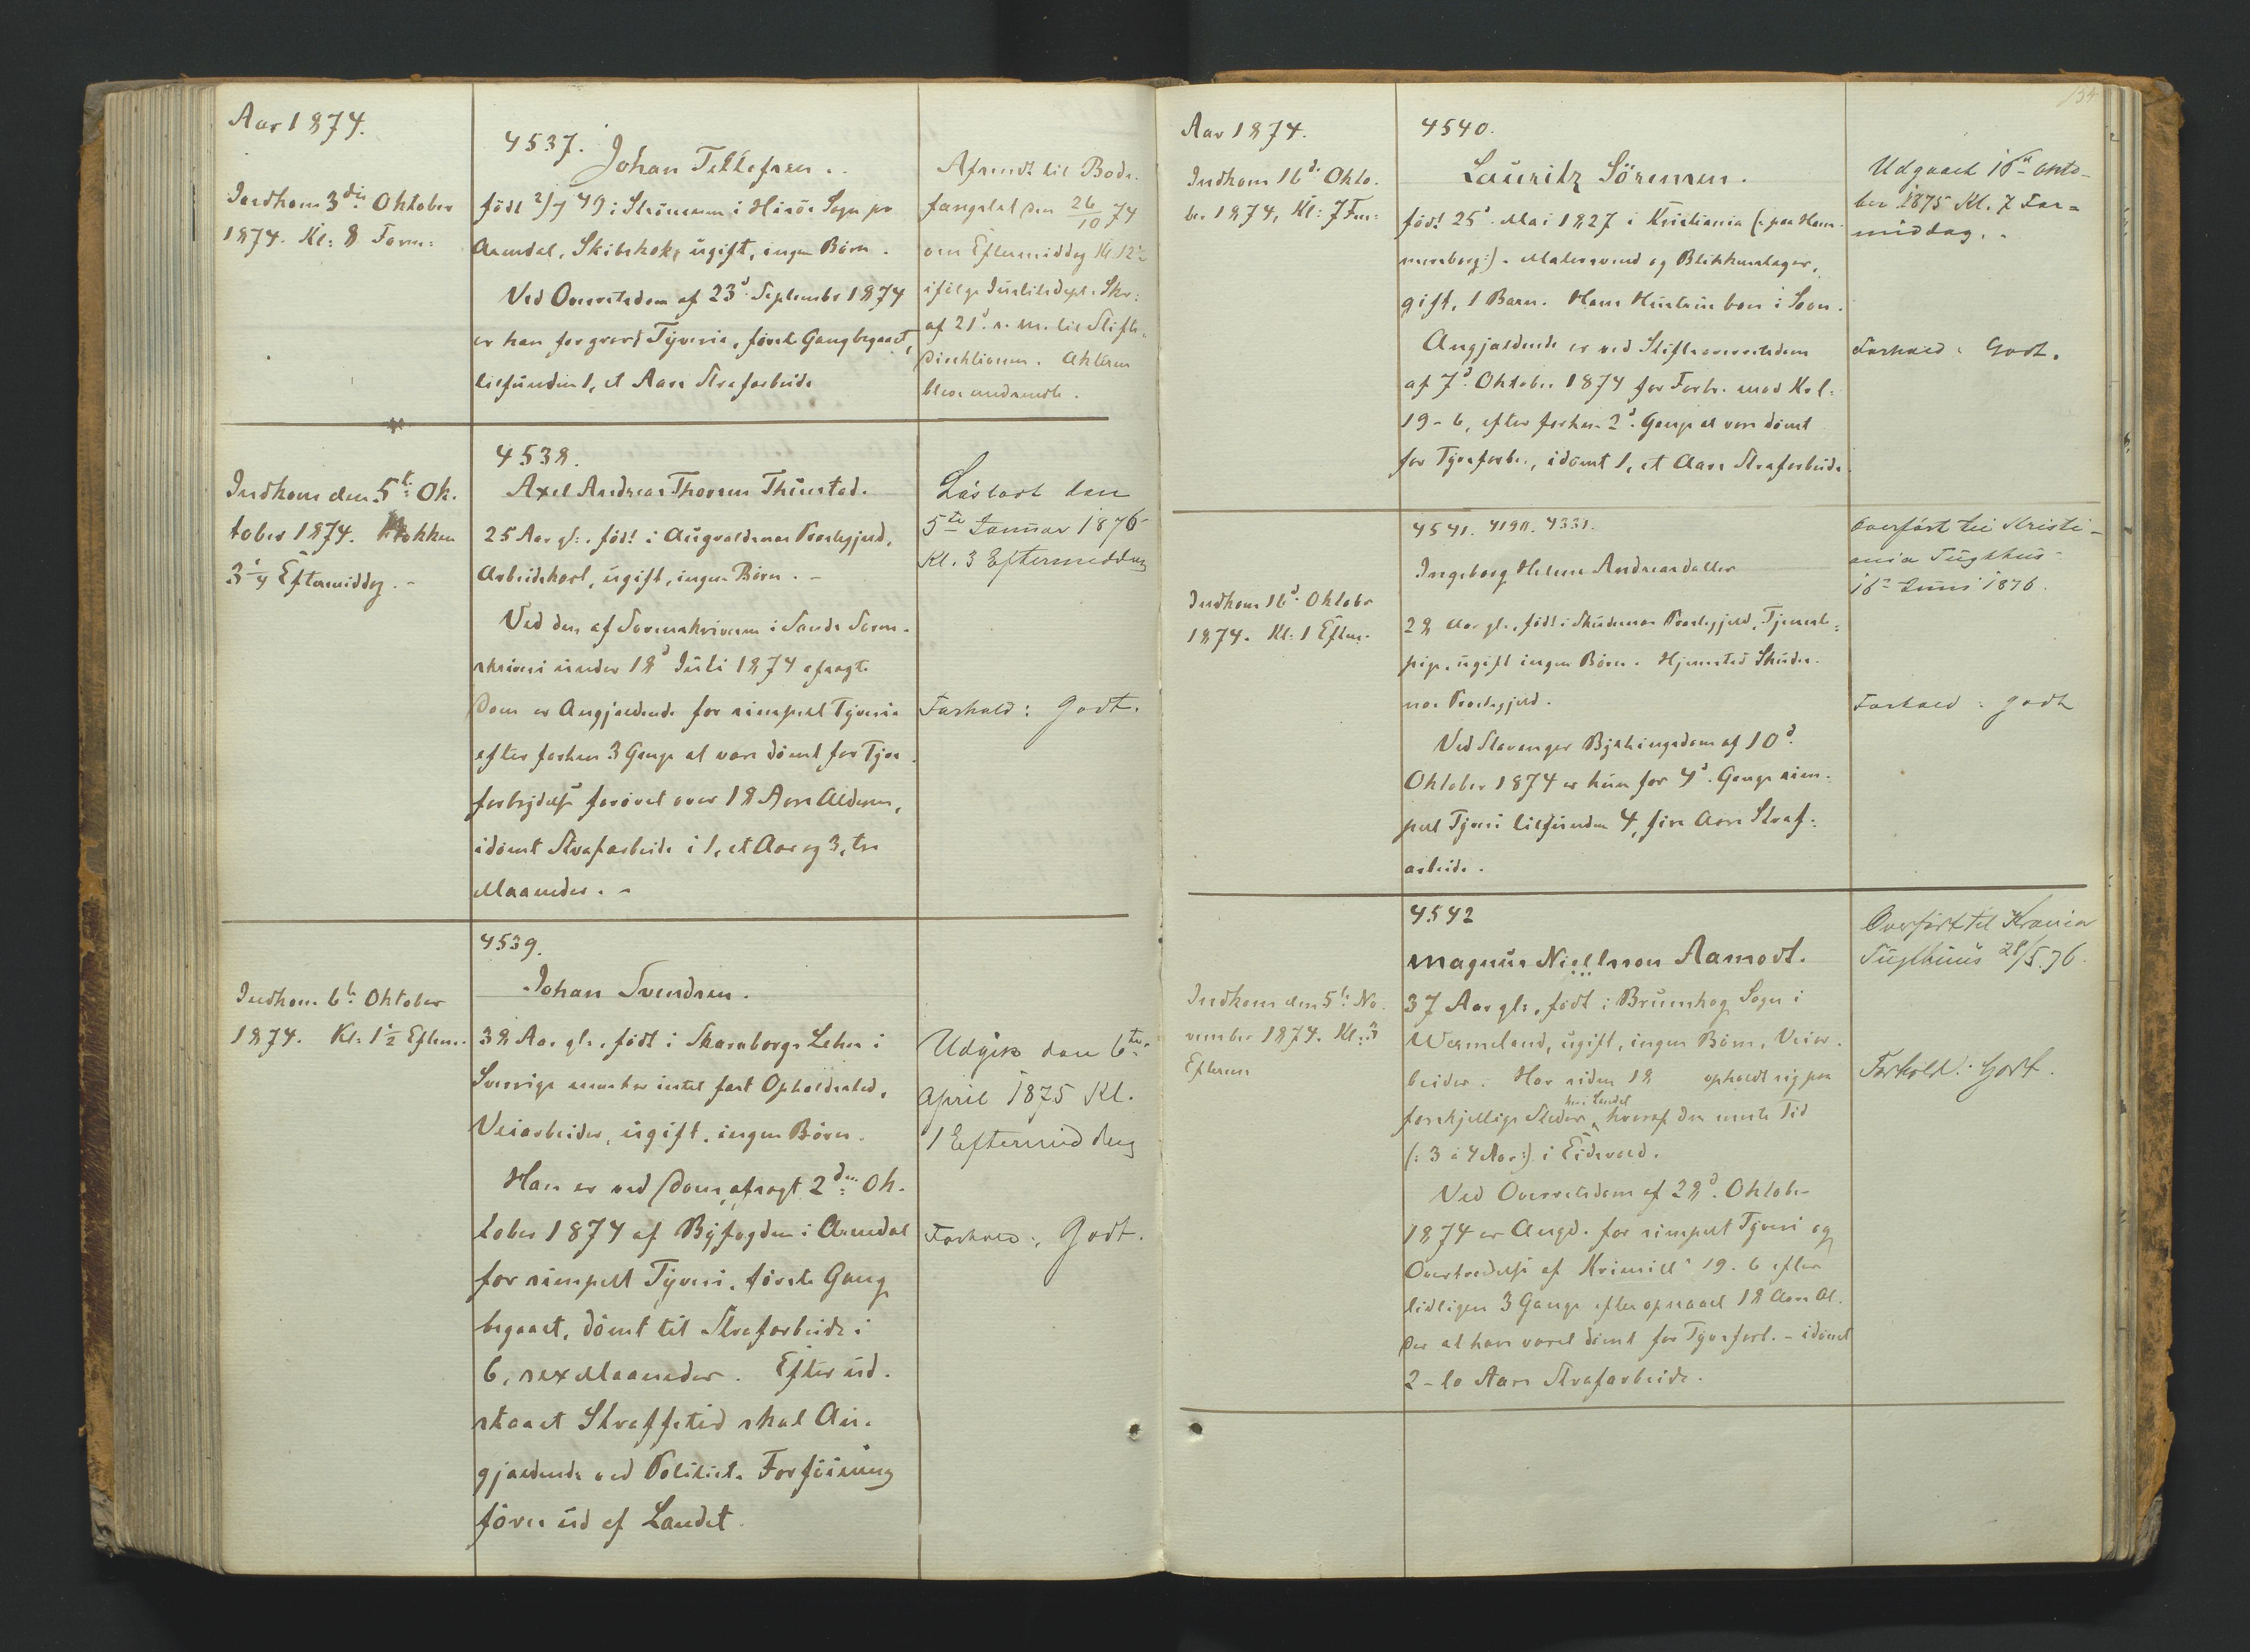 Aar 1874.
Indkom 3die Oktober
1874. Kl: 8 Form:
4537.
Johan Tellefsen.
födt 2/7 49 i Strömmen i Hisöe Sogn pr
Arendal, Skibskok, ugift, ingen Börn.
Ved Overretsdom af 23d. Septembr 1874
er han for grovt Tyverie, förste Gang begaaet,
tilfunden 1, et Aars Strafarbeide
Afsendt til Bods-
fængslet den 26/10 74
om Eftermiddag Kl. 12½
ifölge Justitsdept. Skr:
af 21d. s. m. til Stifts-
Direktionen. Akterne
bleve medsendte.
Indkom den 5te Ok-
tober 1874. Klokken
3¼ Eftermiddag. -
4538.
Axel Andreas Thorsen Thuestad.
25 Aar gl:, födt i Augvaldsnes Prestegjeld,
Arbeidskarl, ugift, ingen Börn. -
Ved den af Sorenskriveren i Sands Soren-
skriveri under 18d Juli 1874 afsagte
Dom er Angjældende for simpelt Tyverie
efter forhen 3 Gange at være dömt for Tyvs-
forbrydelse forövet over 18 Aars Alderen,
idömt Strafarbeide i 1, et Aar og 3, tre
Maaneder. -
Lösladt den
5te Januar 1876
Kl. 3 Eftermiddag
Forhold: Godt.
Indkom 6te Oktober
1874. Kl. 1½ Efterm.
4539.
Johan Svendsen.
38 Aar gl., födt i Skaraborgs Lehn i
Sverrige men har intet fast Opholdssted,
Veiarbeider, ugift, ingen Börn.
Han er ved Dom, afsagt 2den Ok-
tober 1874 af Byfogden i Arendal
for simpelt Tyveri, förste Gang
begaaet, dömt til Strafarbeide i
6, sex Maaneder. Efter ud-
staaet Straffetid skal An-
gjældende ved Politiets Forföining
föres ud af Landet.
Udgik den 6te
April 1875 Kl.
1 Eftermiddag
Forhold: Godt.
134
Aar 1874.
Indkom 16d. Okto-
ber 1874, Kl: 7 Form:
4540.
Lauritz Sörensen.
födt 25d. Mai 1827 i Kristiania (: paa Ham-
mersborg:). Malersvend og Blikkenslager,
gift, 1 Barn. Hans Hustru bor i Soon.
Angjældende er ved Stiftsoverretsdom
af 7d. Oktober 1874 for Forbr. mod Krl:
19-6, efter forhen 2d. Gange at være dömt
for Tyvsforbr., idömt 1, et Aars Strafarbeide.
Udgaaet 16de Okto-
ber 1875 Kl. 7 For-
middag.
Forhold: Godt.
Indkom 16d. Oktobr
1874. Kl: 1 Efterm.
4541. 4190. 4331.
Ingeborg Helene Andreasdatter
28 Aar gl., födt i Skudenes Prestegjeld, Tjeneste-
pige, ugift ingen Börn. Hjemsted Skude-
nes Prestegjeld.
Ved Stavanger Bythingsdom af 10d.
Oktober 1874 er hun for 4d. Gangs sim-
pelt Tyveri tilfunden 4, fire Aars Straf-
arbeide.
Overfört til Kristi-
ania Tugthus
16de Juni 1876.
Forhold: godt
Indkom den 5te No-
vember 1874. Kl: 3
Efterm
4542
Magnus Niellsson Aamodt.
37 Aar gl., födt i Brunskog Sogn i
Wermeland, ugift, ingen Börn, Veiar-
beider. Har siden 18 opholdt sig paa
forskjellige Steder her i Landet, hvoraf den meste Tid
(: 3 à 4 Aar:) i Eidsvold.
Ved Overretsdom af 28d. Oktober
1874 er Angd. for simpelt Tyveri og
Overtrædelse af Krimill: 19. 6 efter
tidligere 3 Gange efter opnaaet 18 Aars Al-
der at have været dömt for Tyvsforb. - idömt
2 - to Aars Strafarbeide.
Overfört til Krania
Tugthuus 28/5.76.
Forhold: Godt.